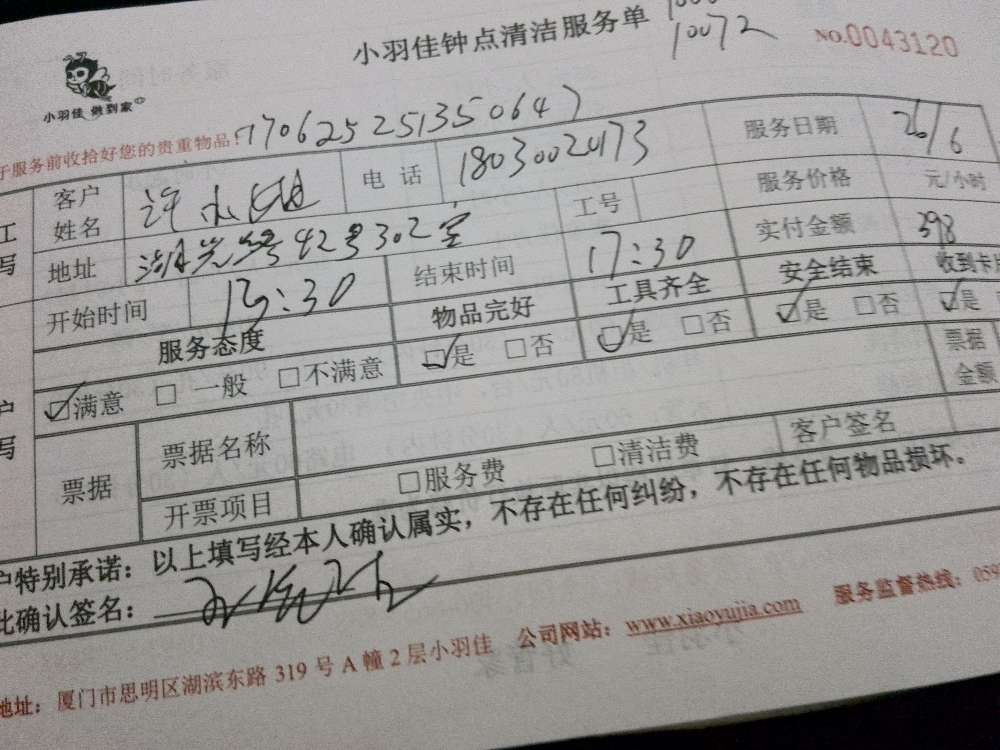 小羽佳钟点清洁服务单
10072
NO.0043120
小羽佳 做到家
于服务前收拾好您的贵重物品!
客户姓名 许 电话 服务日期 26/6
服务价格 元/小时
地址 42号302室 工号 实付金额 398
开始时间 13:30 结束时间 17:30
服务态度 物品完好 工具齐全 安全结束 收到卡片
☑满意 □ 一般 □不满意 ☑是 □否 ☑是 □否 ☑是 □否 ☑是
票据 票据名称 票据金额
开票项目 □服务费 □清洁费 客户签名
户特别承诺：以上填写经本人确认属实，不存在任何纠纷，不存在任何物品损坏。
此确认签名：
地址：厦门市思明区湖滨东路 319 号 A 幢 2 层小羽佳 公司网站：www.xiaoyujia.com 服务监督热线：059